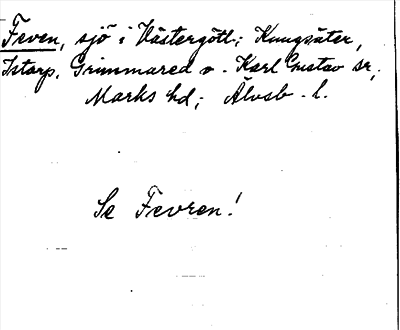 Feven, sjö i Västergötl; Kungsäter,
Istorp, Grimmared o. Karl Gustav sr,
Marks hd; Älvsb. l.
Se Fevren!